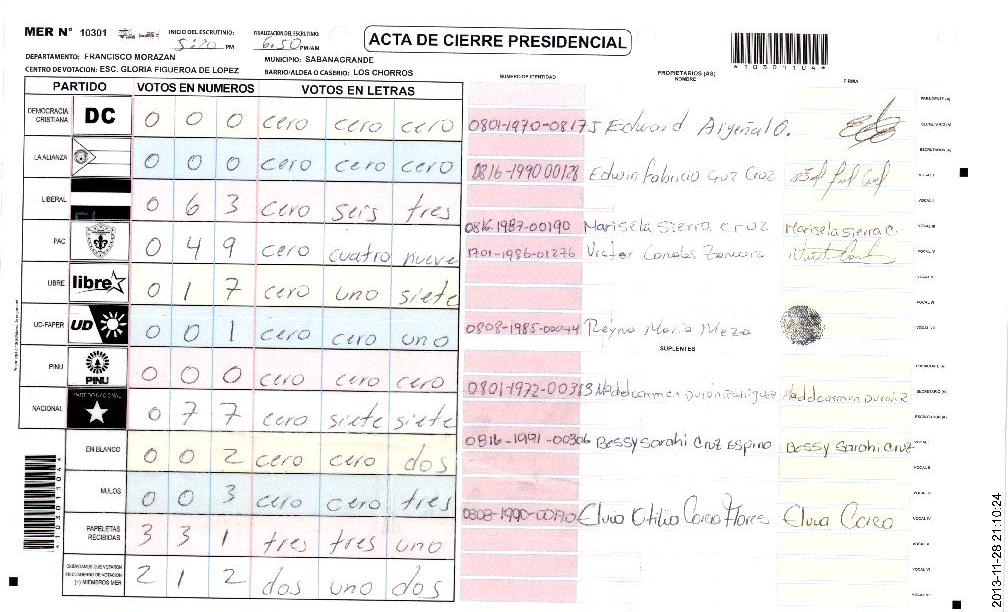 MER N° 10301 INICIO DEL ESCRUTINIO: 5:20 PM FINALIZACION DEL ESCRUTINIO: 6:50 PM/AM
ACTA DE CIERRE PRESIDENCIAL
*10301104*
DEPARTAMENTO: FRANCISCO MORAZAN MUNICIPIO: SABANAGRANDE
CENTRO DE VOTACION: ESC. GLORIA FIGUEROA DE LOPEZ BARRIO/ALDEA O CASERIO: LOS CHORROS
PARTIDO VOTOS EN NUMEROS VOTOS EN LETRAS
DEMOCRACIA CRISTIANA DC 0 0 0 cero cero cero
LA ALIANZA 0 0 0 cero cero cero
LIBERAL 0 6 3 cero seis tres
PAC 0 4 9 cero cuatro nueve
LIBRE libre 0 1 7 cero uno siete
UD-FAPER UD 0 0 1 cero cero uno
PINU PINU 0 0 0 cero cero cero
NACIONAL PARTIDO NACIONAL 0 7 7 cero siete siete
EN BLANCO 0 0 2 cero cero dos
NULOS 0 0 3 cero cero tres
PAPELETAS RECIBIDAS 3 3 1 tres tres uno
CIUDADANOS QUE VOTARON EN CUADERNO DE VOTACION (+) MIEMBROS MER 2 1 2 dos uno dos
*10301104*
NUMERO DE IDENTIDAD PROPIETARIOS (AS) NOMBRE FIRMA
PRESIDENTE (A)
0801-1970-08175 Edward Argeñal O. SECRETARIO (A)
ESCRUTADOR (A)
0816-1990 00128 Edwin Fabricio Guz Cruz VOCAL I
VOCAL II
0816-1987-00190 Marisela Sierra Cruz Marisela Sierra C. VOCAL III
1701-1986-01276 Victor Canales VOCAL IV
VOCAL V
VOCAL VI
0808-1985-00044 Reyna Maria Meza VOCAL VII
SUPLENTES
PRESIDENTE (A)
0801-1972-00383 SECRETARIO (A)
ESCRUTADOR (A)
0816-1991-00306 Bessy Sarahi Cruz Espino Bessy Sarahi Cruz VOCAL I
VOCAL II
VOCAL III
0808-1990-00190 Elvia Otilia Carea Flores Elvia Carea VOCAL IV
VOCAL V
VOCAL VI
VOCAL VII
2013-11-28 21:10:24